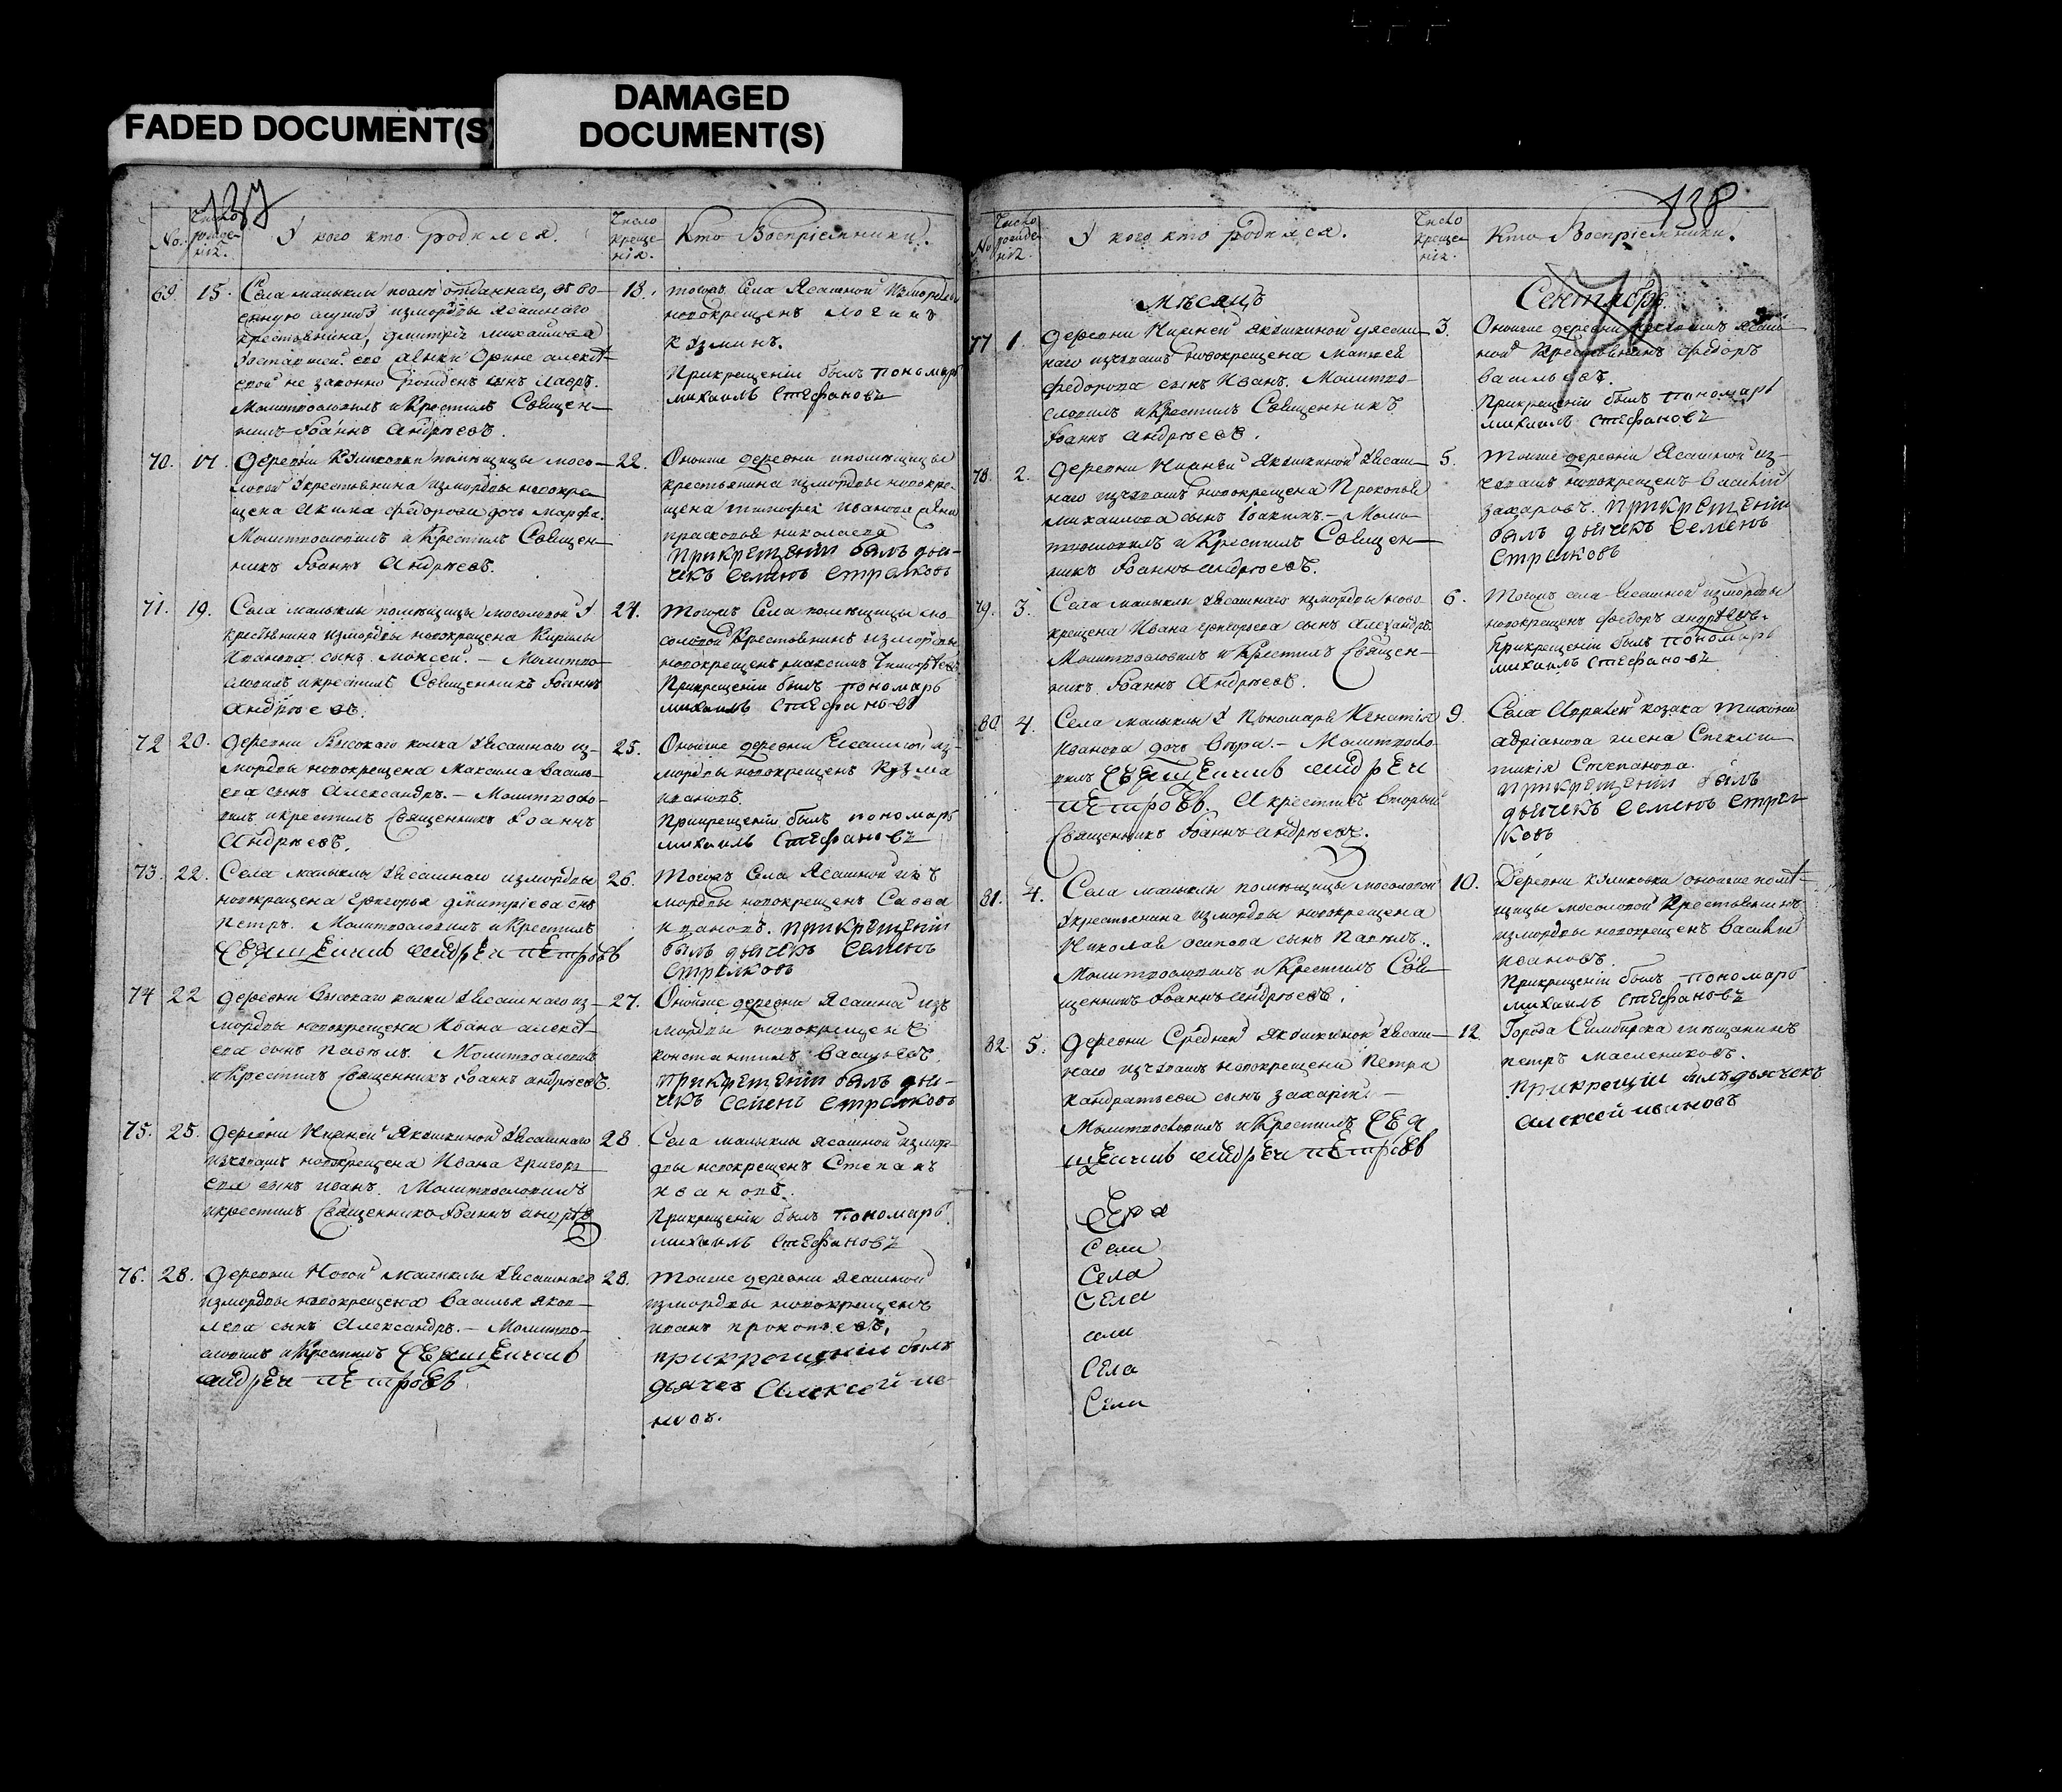 FADED DOCUMENT(S
DAMAGED
DOCUMENT(S)
137
No.
Число рожденія.
У кого кто родился.
Число крещенія.
Кто Воспріемники.
69. 15.
Села малыклы
крестьянина, дмитрія михайлова
не законно рожденъ сынъ
Молитвословилъ и Крестилъ Священ-
никъ Іоаннъ Андреевъ.
18.
тогожъ Села Ясашной измордвы
новокрещенъ Логинъ
Козминъ.
Прикрещеніи былъ пономарь
михаилъ стефановъ
70. 17.
Деревни Куликовки помѣщицы мосо-
ловой крестьянина измордвы новокре-
щена Акима федорова дочь марфа.
Молитвословилъ и Крестилъ Священ-
никъ Іоаннъ Андреевъ.
22.
Оноиже деревни помѣщицы
крестьянина измордвы новокре-
щена тимофея иванова жена
прасковья николаева
прикрещеніи былъ дья-
чекъ Семенъ Стрелковъ
71. 19.
Села малыклы помѣщицы мосоловой У
крестьянина измордвы новокрещена Кирилы
Иванова сынъ моисей. — Молитво-
словилъ и крестилъ Священникъ Іоаннъ
Андреевъ.
24.
Тогожъ Села помѣщицы мо-
соловой Крестьянинъ измордвы
новокрещенъ максимъ Тимофеевъ
Прикрещеніи былъ пономарь
михаилъ стефановъ
72 20.
Деревни Высокаго колка Уясашнаго из-
мордвы новокрещена Максима василь-
ева сынъ Александръ. — Молитвосло-
вилъ и крестилъ Священникъ Іоаннъ
Андреевъ.
25.
Оноиже деревни Ясашной из-
мордвы новокрещенъ Кузма
ивановъ.
Прикрещеніи былъ пономарь
михаилъ Стефановъ
73. 22.
Села малыклы Уясашнаго измордвы
новокрещена Григорья дмитріева сынъ
Петръ. Молитвословилъ и Крестилъ
Священникъ андреи петровъ
26.
Тогожъ Села Ясашной изъ
мордвы новокрещенъ Савва
ивановъ. прикрещеніи
былъ дьячекъ Семенъ
Стрелковъ
74 22
деревни Высокаго колка Уясашнаго из-
мордвы новокрещена Ивана алексѣ-
ева сынъ павелъ. Молитвословилъ
и Крестилъ Священникъ Іоаннъ андреевъ.
27.
Оноиже деревни Ясашной изъ
мордвы новокрещенъ
константинъ Васильевъ.
прикрещеніи былъ дья-
чекъ Семенъ Стрелковъ
75. 25.
деревни Нижней Якушкиной Уясашнаго
изчувашъ новокрещена Ивана григорь-
ева сынъ иванъ. Молитвословилъ
и крестилъ Священникъ Іоаннъ андреевъ
28
Села малыклы ясашной измор-
двы новокрещенъ Степанъ
ивановъ.
Прикрещеніи былъ пономарь
михаилъ стефановъ
76. 28.
Деревни Новой малыклы Уясашнаго
измордвы новокрещена василья яков-
лева сынъ Александръ. — Молитво-
словилъ и Крестилъ Священникъ
андреи петровъ
28.
Тоиже деревни Ясашной
измордвы новокрещенъ
иванъ прокопьевъ.
прикрещеніи былъ
дьячекъ Алексей ива-
новъ.
138
No
Число рожденія.
У кого кто родился.
Число крещенія.
Кто Воспріемники.
Мѣсяцъ
Сентябрь
77 1.
деревни Нижней Якушкиной уясаш-
наго изчувашъ новокрещена матвея
федорова сынъ Иванъ. Молитво-
словилъ и Крестилъ Священникъ
Іоаннъ андреевъ.
3.
Оноиже деревни ясаш-
ной Крестьянинъ федоръ
васильевъ.
Прикрещеніи былъ пономарь
михаилъ стефановъ
78. 2.
деревни Нижней Якушкиной Уясаш-
наго изчувашъ новокрещена Прокопья
михаилова сынъ Іоакимъ. — Моли-
твословилъ и Крестилъ Священ-
никъ Іоаннъ андреевъ.
5.
Тоиже деревни Ясашной из-
чувашъ новокрещенъ Василій
захаровъ. прикрещеніи
былъ дьячекъ Семенъ
Стрелковъ
79. 3.
Села малыклы Уясашнаго измордвы ново-
крещена Ивана григорьева сынъ александръ.
Молитвословилъ и Крестилъ Священ-
никъ Іоаннъ Андреевъ.
6.
Тогожъ села Ясашной измордвы
новокрещенъ федоръ андреевъ.
Прикрещеніи былъ пономарь
михаилъ стефановъ
80. 4.
Села малыклы У Пономаря Игнатія
Иванова дочь вѣра. — Молитвосло-
вилъ Священникъ андреи
петровъ. А крестилъ вторый
Священникъ Іоаннъ андреевъ.
9.
Села козака тихона
адріанова жена
Степанова.
прикрещеніи былъ
дьячекъ Семенъ Стрел
ковъ
81. 4.
Села малыклы помѣщицы мосоловой
Укрестьянина измордвы новокрещена
Николая осипова сынъ Павелъ.
Молитвословилъ и Крестилъ Свя-
щенникъ Іоаннъ андреевъ.
10.
Деревни куликовки оноиже помѣ-
щицы мосоловой Крестьянинъ
измордвы новокрещенъ василій
ивановъ.
Прикрещеніи былъ пономарь
михаилъ стефановъ
82. 5.
деревни Средней Якушкиной Уясаш-
наго изчувашъ новокрещена Петра
кандратьева сынъ захарій. —
Молитвословилъ и Крестилъ Свя
щенникъ андреи петровъ
12.
Города Симбирска мѣщанинъ
петръ маслениковъ.
прикрещіи былъ дьячекъ
алексей ивановъ
Села
Села
Села
села
Села
Села